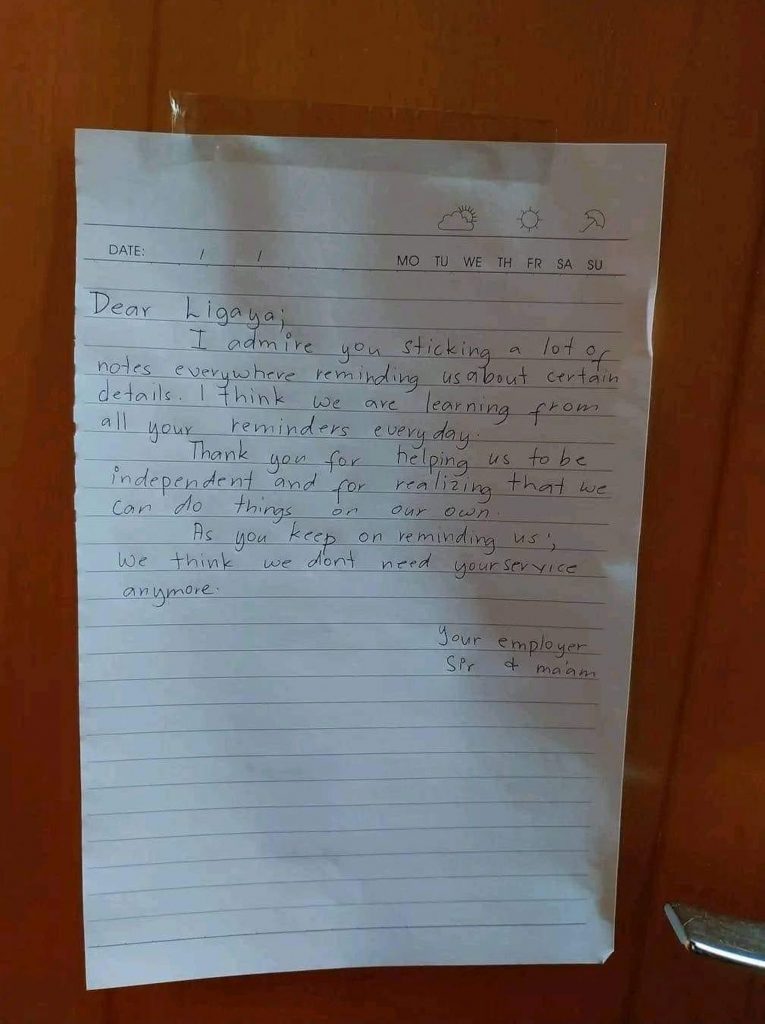 DATE: / /
MO TU WE TH FR SA SU
Dear Ligaya;
I admire you sticking a lot of
notes everywhere reminding us about certain
details. I think we are learning from
all your reminders everyday.
Thank you for helping us to be
independent and for realizing that we
can do things on our own.
As you keep on reminding us;
We think we dont need your service
anymore.
Your employer
Sir & ma'am